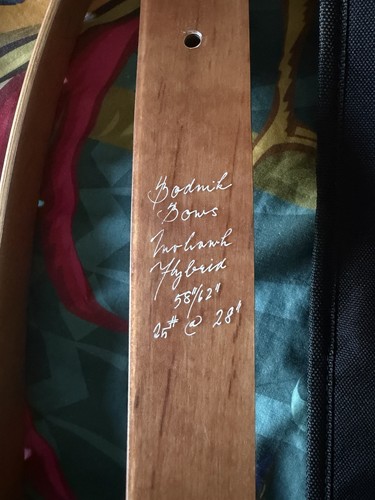 Bodnik
Bows
Mohawk
Hybrid
58"/62"
25# @ 28"